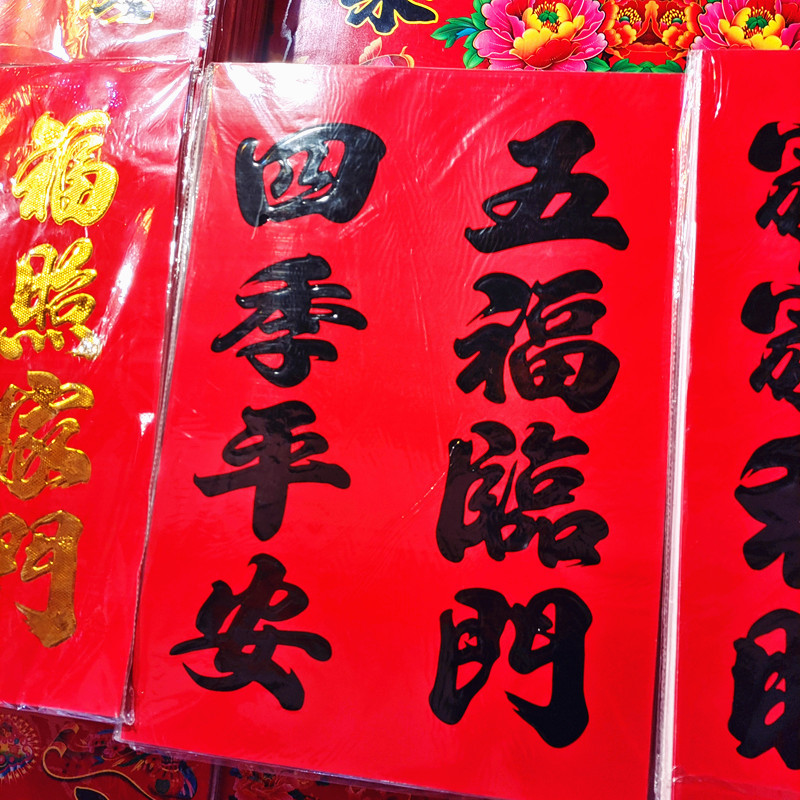 五福臨門
四季平安
福照家門